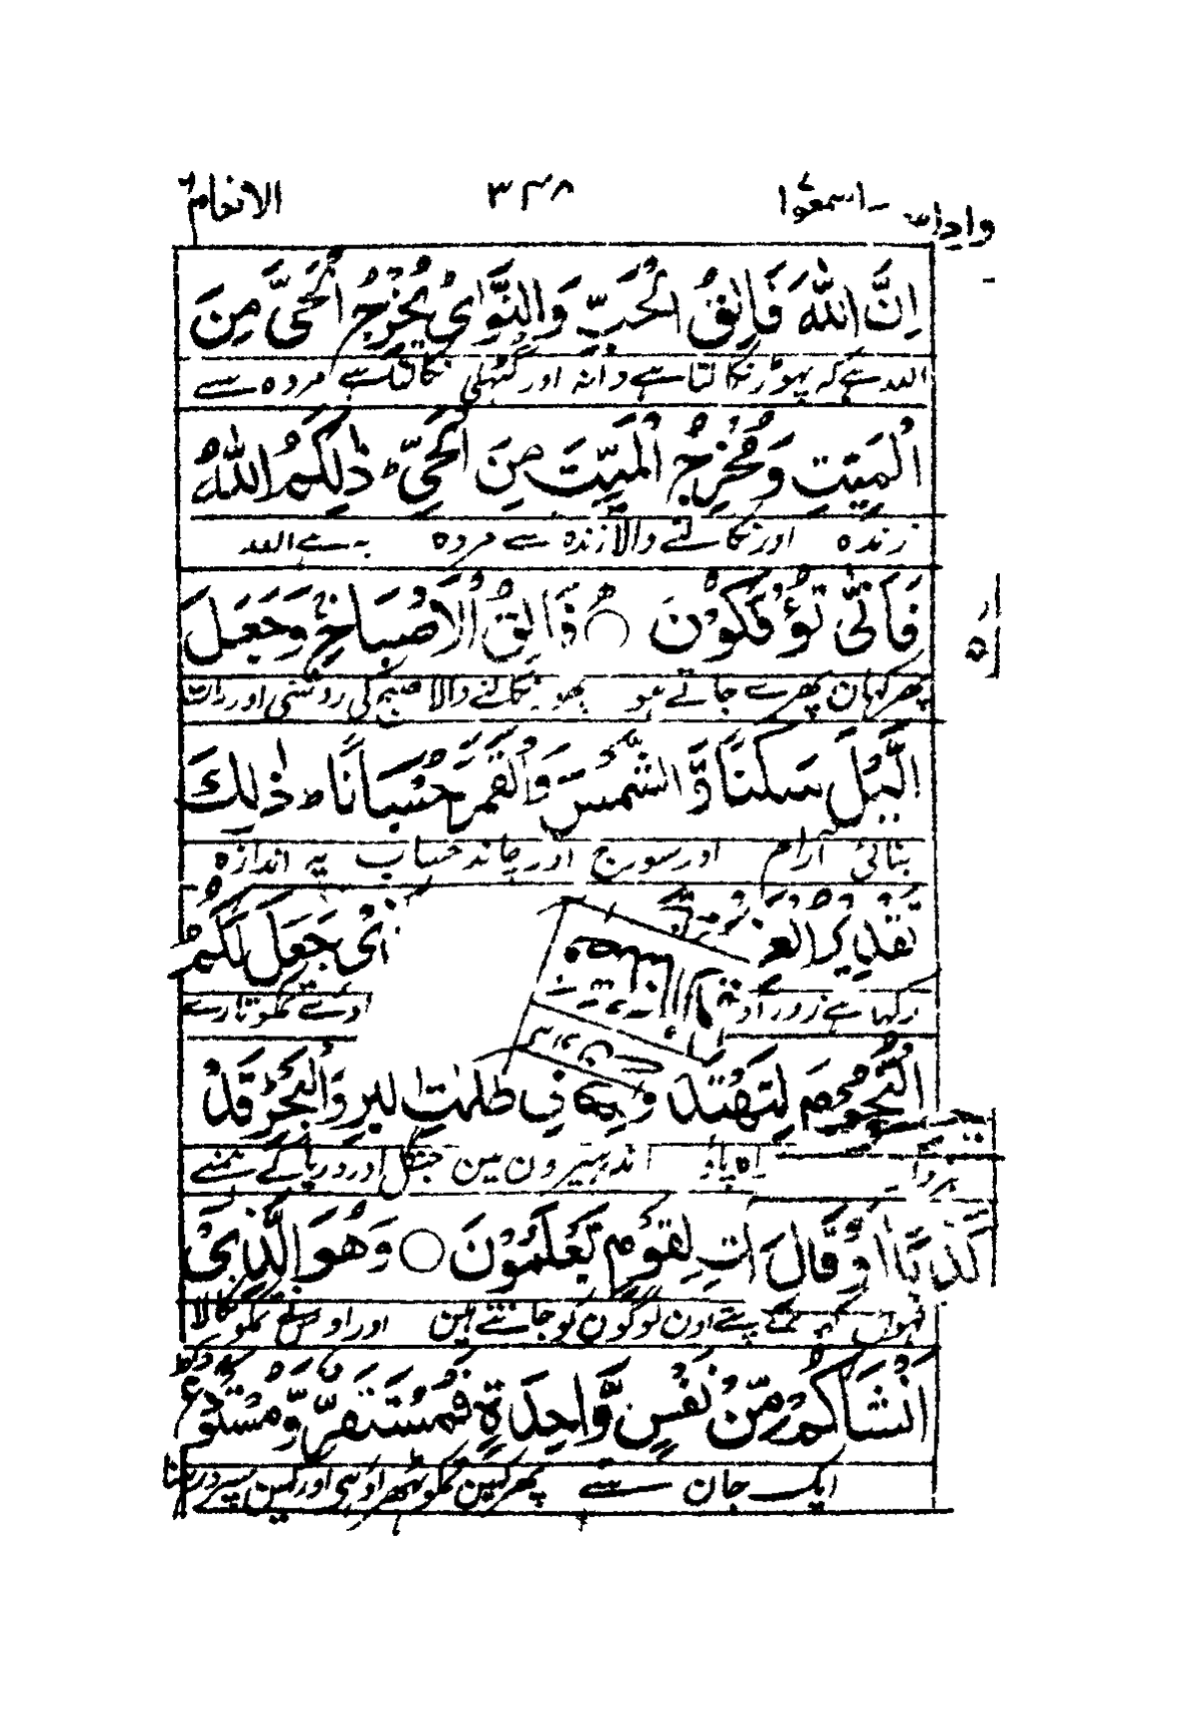 واذا سمعوا ۳۴۸ الانعام
اِنَّ اللّٰهَ فَالِقُ الْحَبِّ وَالنَّوٰىؕ یُخْرِجُ الْحَیَّ مِنَ
اللہ ہے کہ پھوڑ نکالتا ہے دانہ اور گٹھلی نکالتا ہے مردہ سے
الْمَیِّتِ وَمُخْرِجُ الْمَیِّتِ مِنَ الْحَیِّؕ ذٰلِكُمُ اللّٰهُ
زندہ اور نکالنے والا زندہ سے مردہ یہ ہے اللہ
فَاَنّٰی تُؤْفَكُوْنَ فَالِقُ الْاِصْبَاحِۚ وَجَعَلَ
پھر کہان پھرے جاتے ہو پھو نکالنے والا صبح کی روشنی اور رات
الَّیْلَ سَكَنًا وَّالشَّمْسَ وَالْقَمَرَ حُسْبَانًاؕ ذٰلِكَ
بنائی آرام اور سورج اور چاند حساب یہ اندازہ
تَقْدِیْرُ الْعَ ذِیْ جَعَلَ لَكُمُ
رکہا ہے زور آو اوسنے تمکو تارے
النُّجُوْمَ لِتَهْتَدُ فِیْ ظُلُمٰتِ الْبَرِّ وَالْبَحْرِؕ قَدْ
راہ پاؤ اندہیرون مین جنگل اور دریا کے ہمنے
اٰتِ لِقَوْمٍ یَّعْلَمُوْنَ وَهُوَ الَّذِیْ
پتے اون لوگون کو جانتے ہین اور اوسنے تمکو نکالا
اَنْشَاَكُمْ مِّنْ نَّفْسٍ وَّاحِدَةٍ فَمُسْتَقَرٌّ وَّمُسْتَوْدَعٌ
ایک جان سے پھر کہین تمکو ٹھہراؤ ہی اور کہین سپرد رہنا